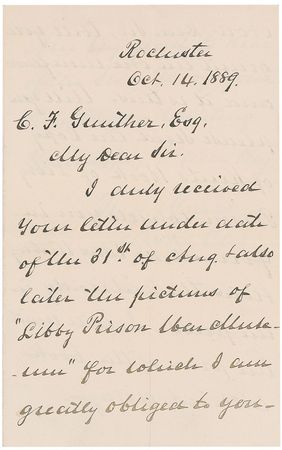 Rochester
Oct. 14. 1889.
C. F. Gunther, Esq.
My Dear Sir.
I duly received
your letter under date
of the 31st of Aug. & also
later the pictures of
"Libby Prison War Muse-
-um" for which I am
greatly obliged to you-